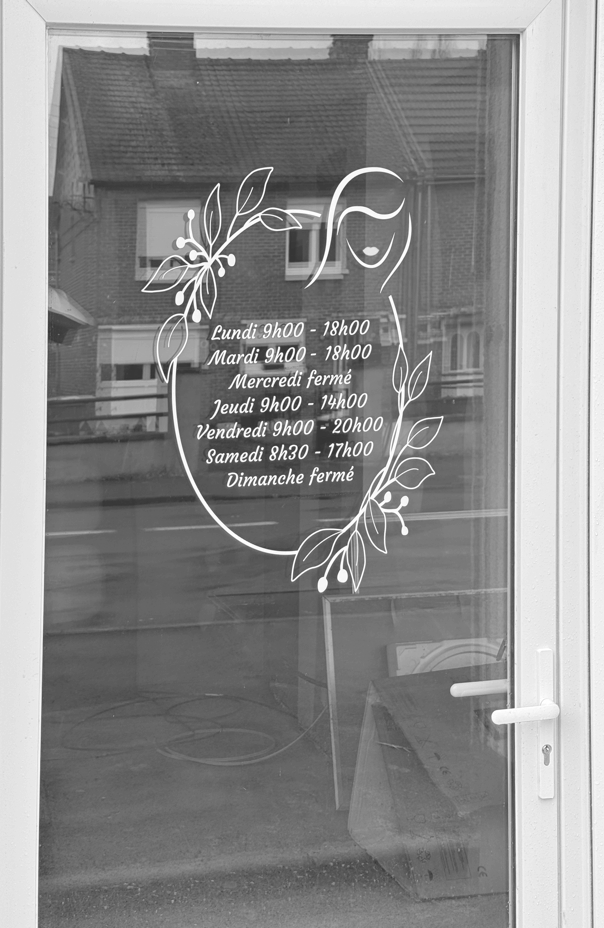 Lundi 9h00 - 18h00
Mardi 9h00 - 18h00
Mercredi fermé
Jeudi 9h00 - 14h00
Vendredi 9h00 - 20h00
Samedi 8h30 - 17h00
Dimanche fermé